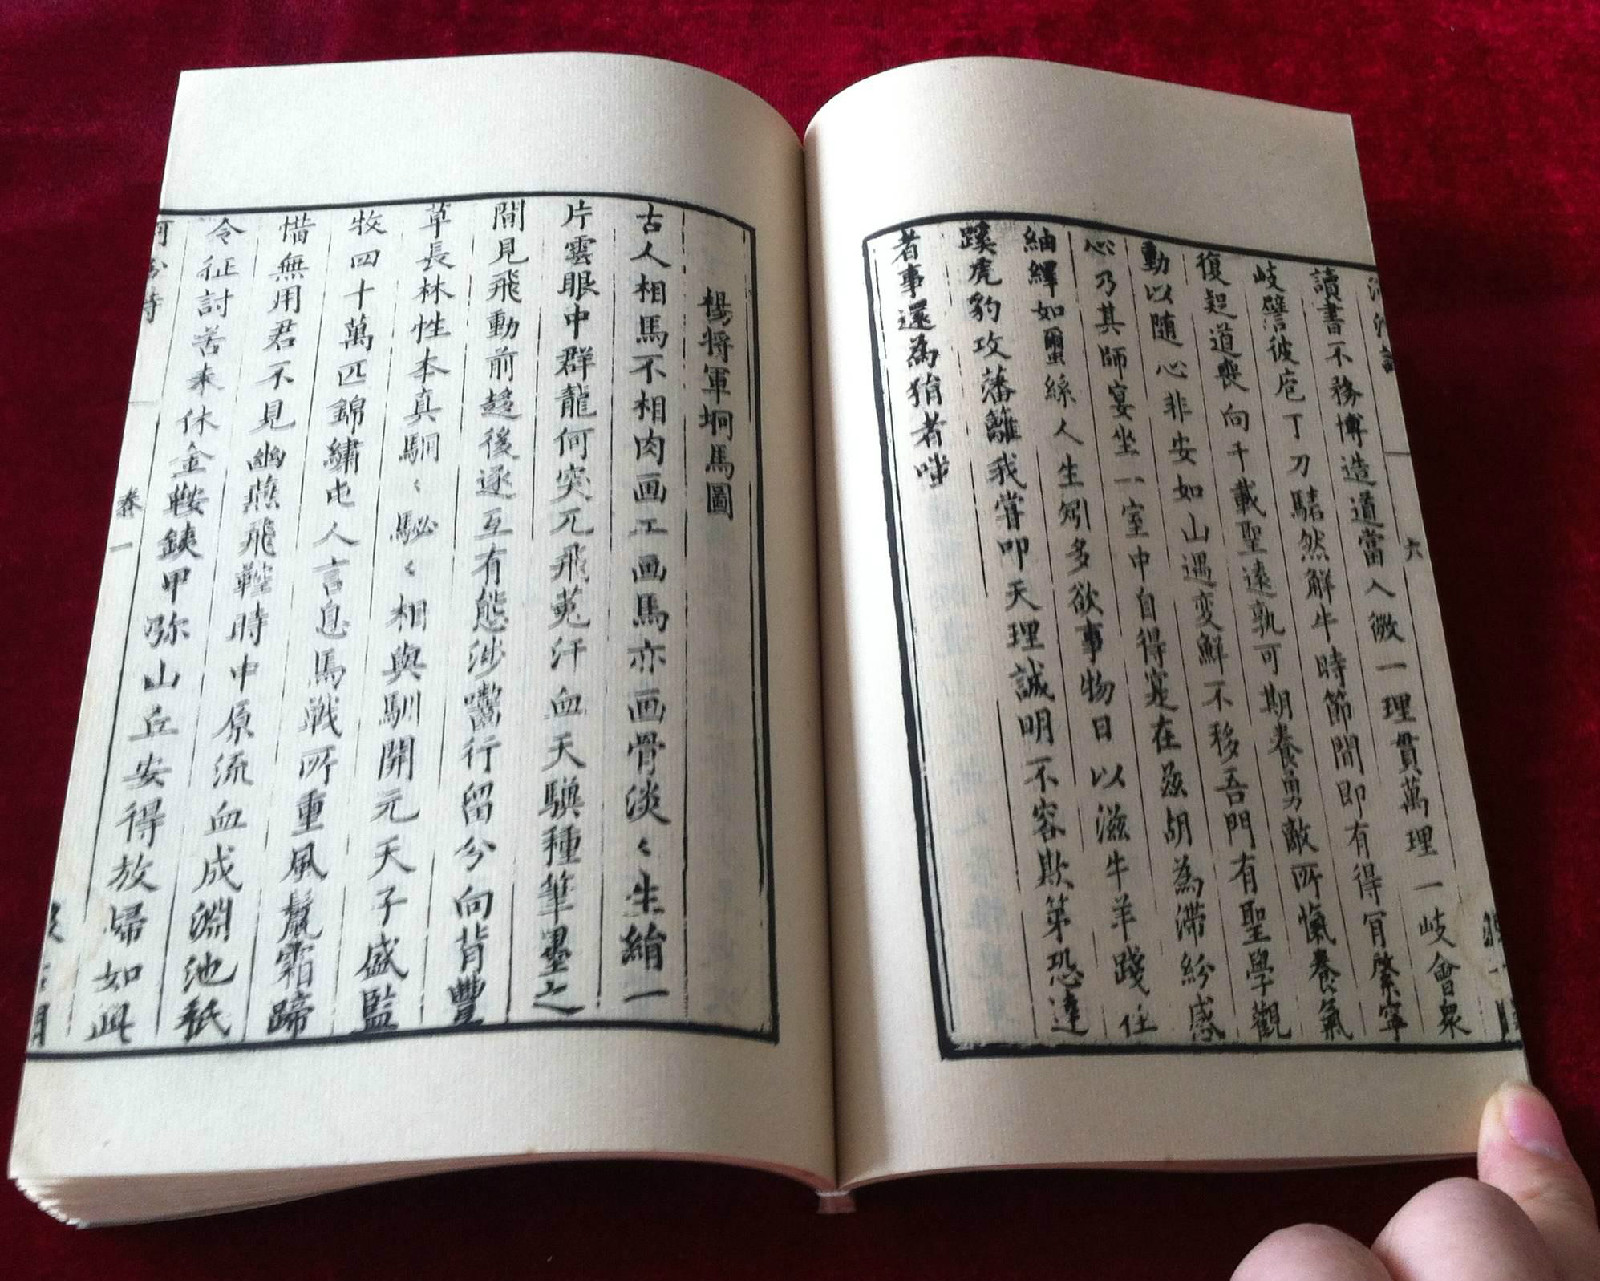 讀書不務博造道當入微一理貫萬理一岐會衆
岐譬彼庖丁刀騞然解牛時節間即有得肎綮寧
復起道喪向千載聖遠孰可期養勇敵所愾養氣
動以随心非安如山遇变鮮不移吾門有聖學觀
心乃其師宴坐一室中自得寔在兹胡為滯紛感
紬繹如䘉絲人生矧多欲事物日以滋牛羊踐在
蹊虎豹攻藩籬我嘗叩天理誠明不容欺第恐達
者事還為狷者嗤
六
楊将軍坰馬圖
古人相馬不相肉画工画馬亦画骨淡〻生綃一
片雲眼中群龍何突兀飛菟汗血天驥種筆墨之
間見飛動前趍後逐互有態涉嚙行留分向背豐
草長林性本真駉〻駜〻相與馴開元天子盛監
牧四十萬匹錦繡屯人言息馬戰所重風鬉霜蹄
惜無用君不見幽燕飛鞚時中原流血成淵池秖
令征討苦未休金鞍鉄甲弥山丘安得放歸如此
卷一